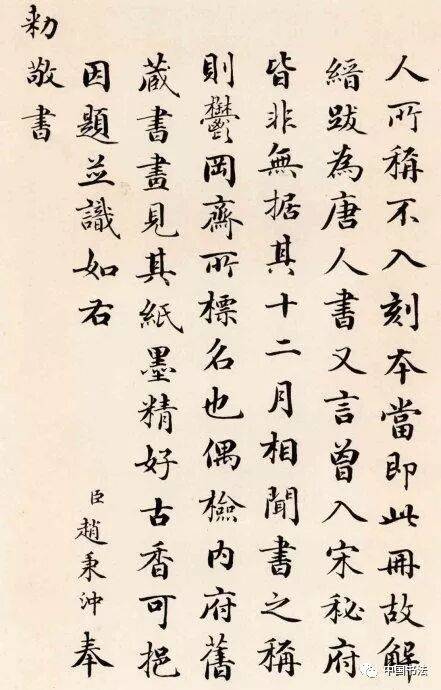 人所稱不入刻本當即此冊故解
縉跋為唐人書又言曾入宋秘府
皆非無据其十二月相聞書之稱
則鬱岡齋所標名也偶檢內府舊
蔵書畫見其紙墨精好古香可挹
因題並識如右
臣趙秉沖奉
勅敬書
中国书法